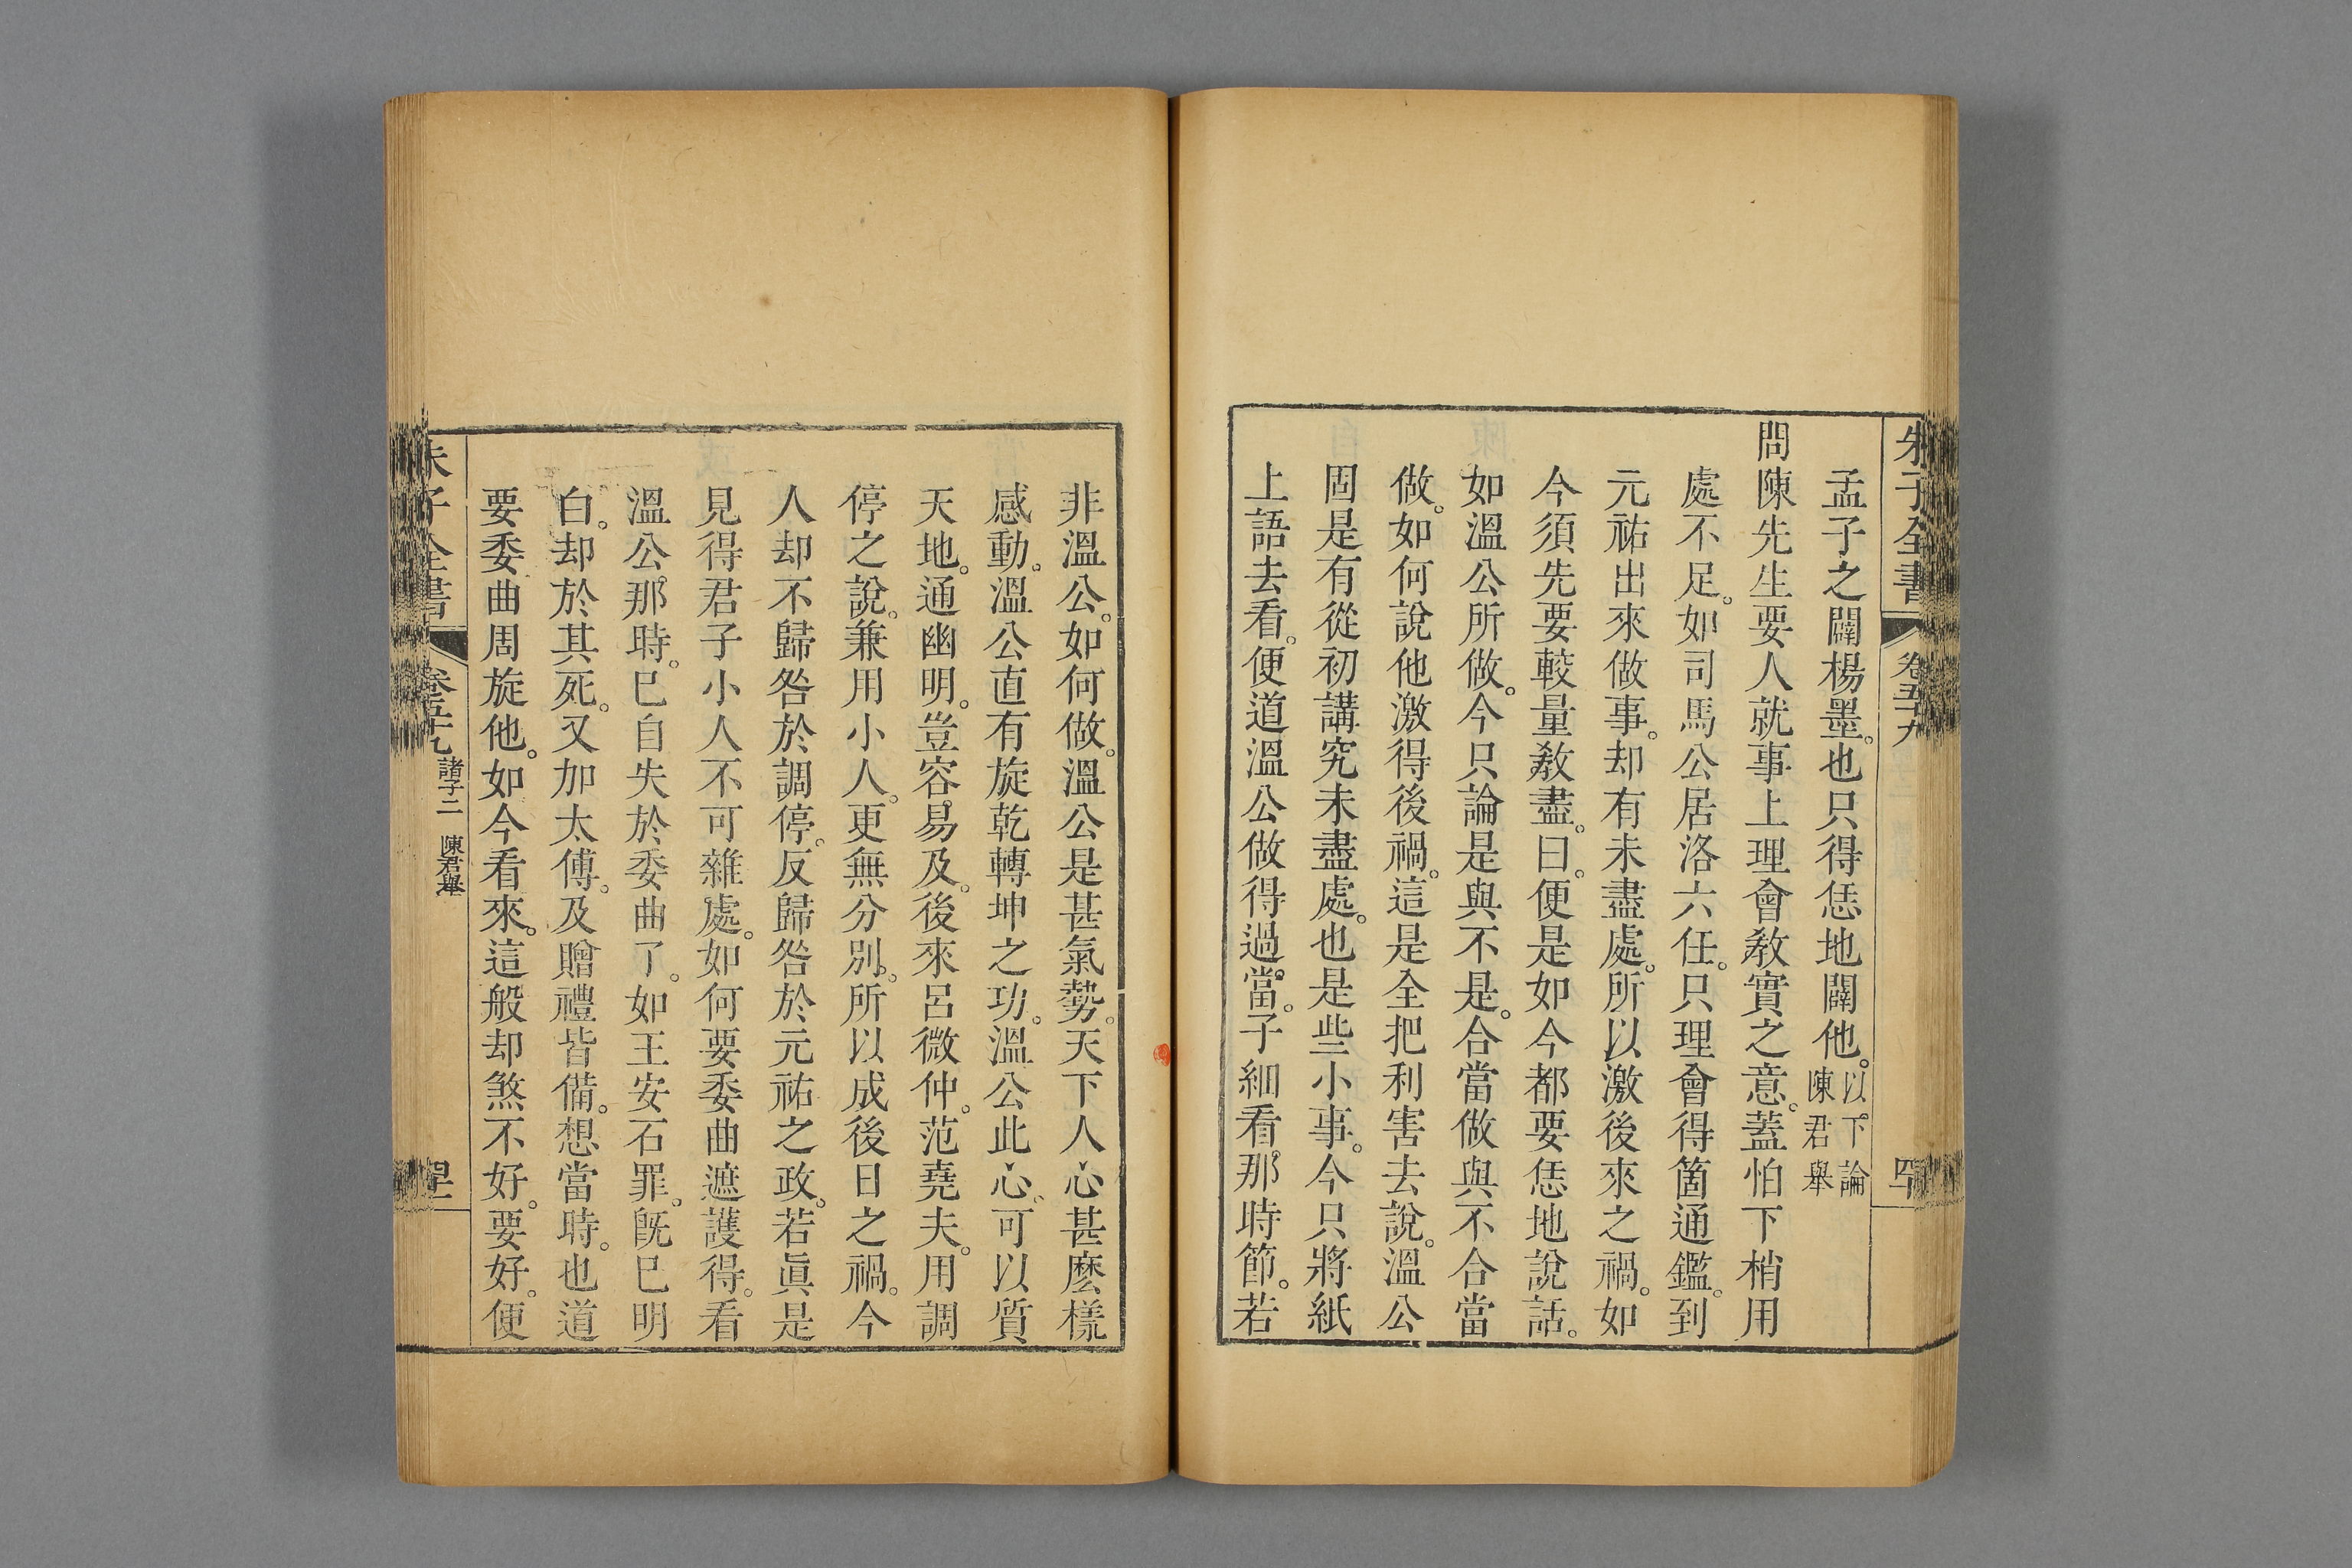 朱子全書 卷五十九 四十
孟子之闢楊墨。也只得恁地闢他。以下論陳君舉
問陳先生要人就事上理會敎實之意。蓋怕下梢用
處不足。如司馬公居洛六任。只理會得箇通鑑。到
元祐出來做事。却有未盡處。所以激後來之禍。如
今須先要較量敎盡。曰。便是如今都要恁地說話。
如溫公所做。今只論是與不是。合當做與不合當
做。如何說他激得後禍。這是全把利害去說。溫公
固是有從初講究未盡處。也是些小事。今只將紙
上語去看。便道溫公做得過當。子細看那時節。若
非溫公。如何做。溫公是甚氣勢。天下人心甚麽樣
感動。溫公直有旋乾轉坤之功。溫公此心。可以質
天地。通幽明。豈容易及。後來呂微仲。范堯夫。用調
停之說。兼用小人。更無分別。所以成後日之禍。今
人却不歸咎於調停。反歸咎於元祐之政。若眞是
見得君子小人不可雜處。如何要委曲遮護得。看
溫公那時。已自失於委曲了。如王安石罪。旣已明
白。却於其死。又加太傅。及贈禮皆備。想當時。也道
要委曲周旋他。如今看來。這般却煞不好。要好。便
朱子全書 卷五十九 諸子二 陳君舉